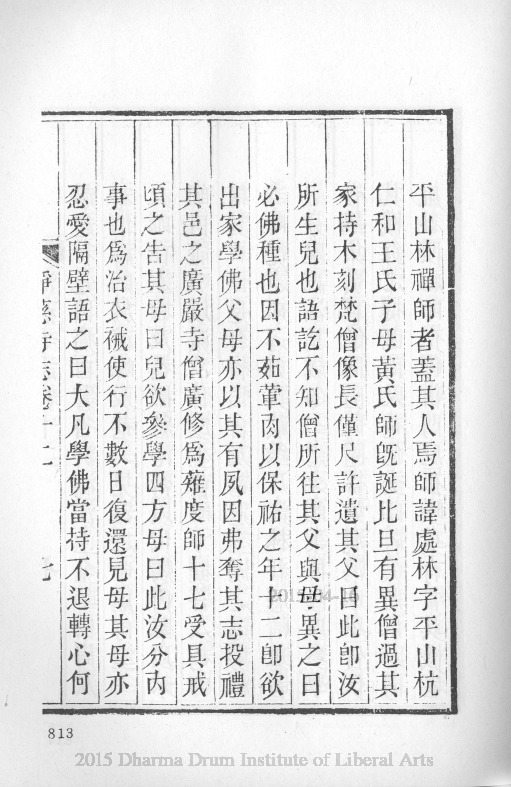 平山林禪師者蓋其人焉師諱處林字平山杭
仁和王氏子母黃氏師旣誕比旦有異僧過其
家持木刻梵僧像長僅尺許遺其父曰此卽汝
所生兒也語訖不知僧所往其父與母異之曰
必佛種也因不茹葷肉以保祐之年十二卽欲
出家學佛父母亦以其有夙因弗奪其志投禮
其邑之廣嚴寺僧廣修爲薙度師十七受具戒
頃之告其母曰兒欲參學四方母曰此汝分內
事也爲治衣裓使行不數日復還見母其母亦
忍愛隔壁語之曰大凡學佛當持不退轉心何
淨慈寺志卷十二 七
813
2015 Dharma Drum Institute of Liberal Arts